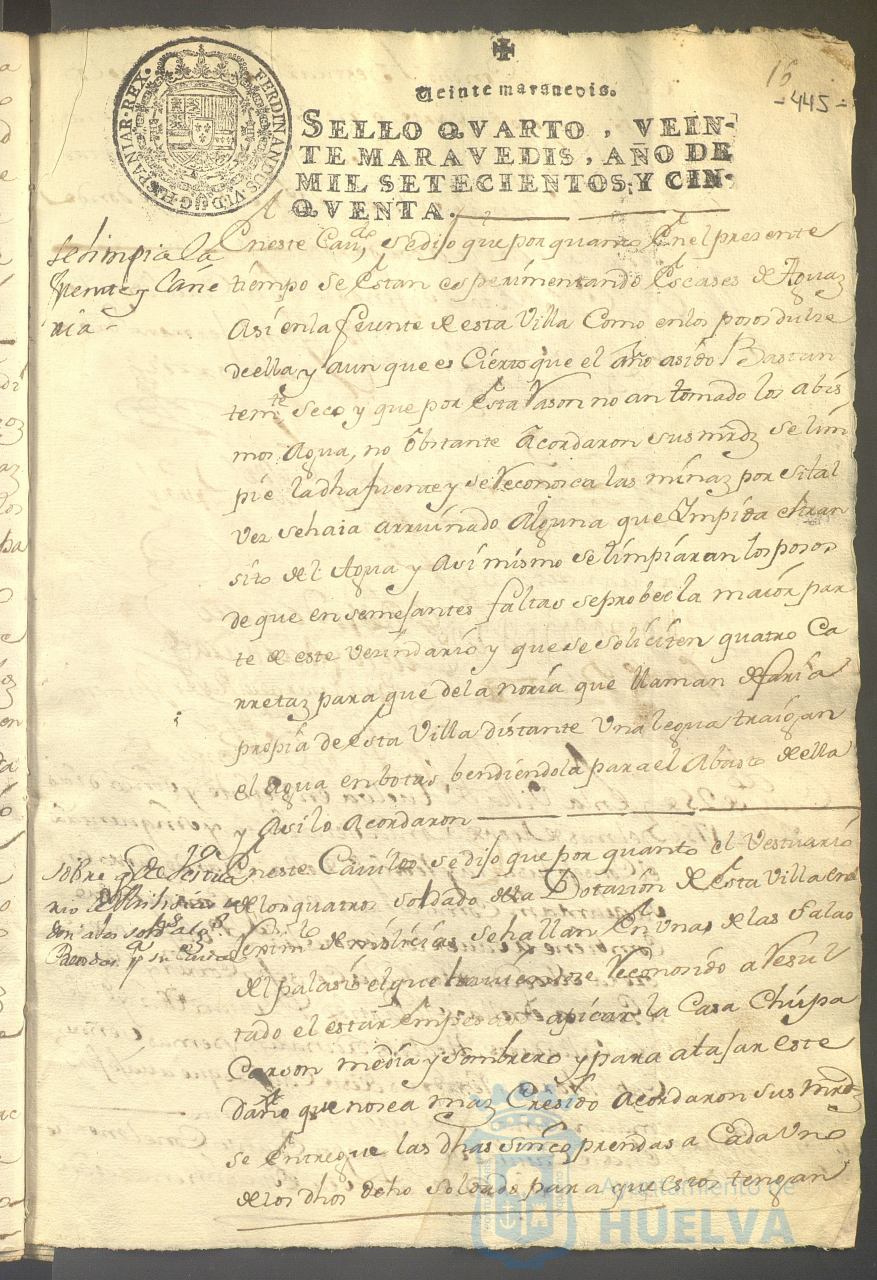 16
-445-
FERDINANDUS·VI·D·G·HISPANIAR·REX·
Veinte maravedis.
SELLO QVARTO, VEIN-
TE MARAVEDIS, AÑO DE
MIL SETECIENTOS, Y CIN-
QVENTA.
se limpia la
fuente y Cañe
ria
En este Cavdo, se dijo que por quanto En el presente
tiempo se Estan esperimentando Escases de Aguaz
Asi en la feunte de esta Villa Como en los posos dulse
de ella y aun que es Cierto que el año asido Bastan
temte Seco y que por Esta Rason no an tomado los abis
mos Agua, no obstante Acordaron sus mrdz se lim
pie la dha fuente y se Reconosca las minaz por si tal
vez se haia arruinado Alguna que Impida el tran
sito del Agua y Asi mismo se limpiaran los posos
de que en semejantes faltas se probee la maior par
te de este vezindario y que se soliciten quatro Ca
rretaz para que de la noria que llaman de faria
propia de Esta Villa distante Una legua traigan
el Agua en botas bendiendola para el Abasto de ella
y Asi lo Acordaron
sobre q el Vestua
rio de Milicias
a los soldos
En este Cavildo se dijo que por quanto el Vestuario
de los quatro soldado de la Dotazion de Esta Villa en el
Rejimto de milicias se hallan En Una de las Salas
del palasio el que haviendose Reconosido a Resul
tado el estar Empesado apicar la Casa Chupa
Carson media y Sombrero y para atajar este
daño que no sea maz Cresido Acordaron sus mrdz
se Entregue las dhas sinco prendas a Cada Uno
de los dhos soldado para que estos tengan
Ayuntamiento de
HUELVA